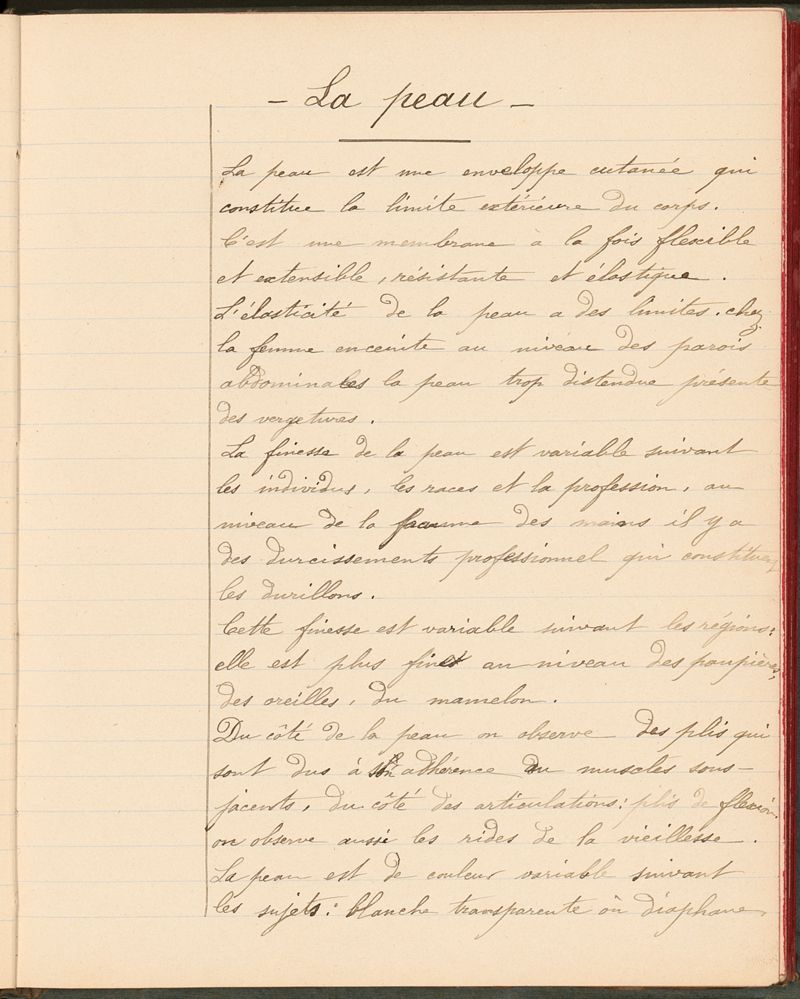 - La peau -
La peau est une enveloppe cutanée qui
constitue la limite extérieure du corps.
C'est une membrane à la fois flexible
et extensible, résistante et élastique.
L'élasticité de la peau a des limites. chez
la femme enceinte au niveau des parois
abdominales la peau trop distendue présente
des vergetures.
La finesse de la peau est variable suivant
les individus, les races et la profession, au
niveau de la des mains il y a
des durcissements professionnel qui constituent
les durillons.
Cette finesse est variable suivant les régions:
elle est plus fine au niveau des paupières,
des oreilles, du mamelon.
Du côté de la peau on observe des plis qui
sont dus à adhérence au muscles sous-
jacents, du côté des articulations: plis de flexion.
on observe aussi les rides de la vieillesse.
La peau est de couleur variable suivant
les sujets: blanche transparente où diaphane,